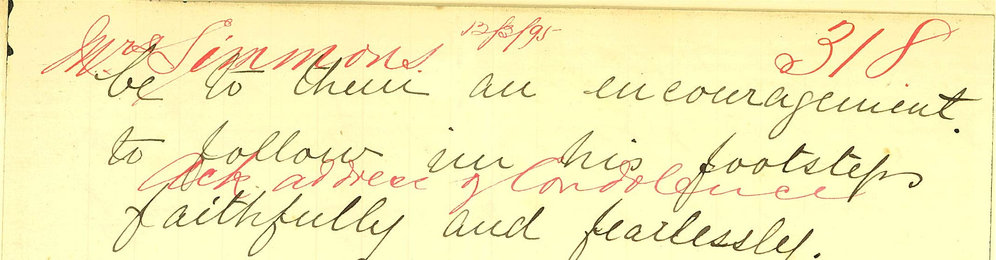 Mrs Simmons 12/3/95 318
be to them an encouragement.
to follow in his footsteps
Ack address of Condolence
faithfully and fearlessly.